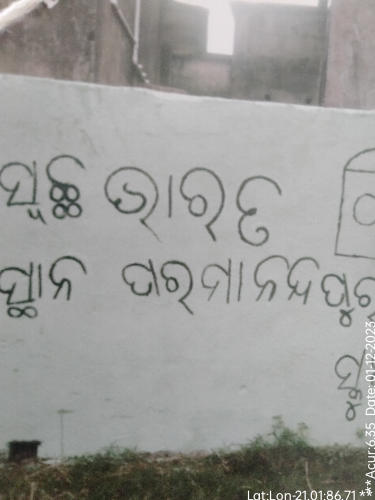 ସ୍ୱଚ୍ଛ ଭାରତ
ସ୍ଥାନ ପରମାନନ୍ଦପୁର
Lat:Lon-21.01:86.71 ***Acur:6.35 Date: 01-12-2023